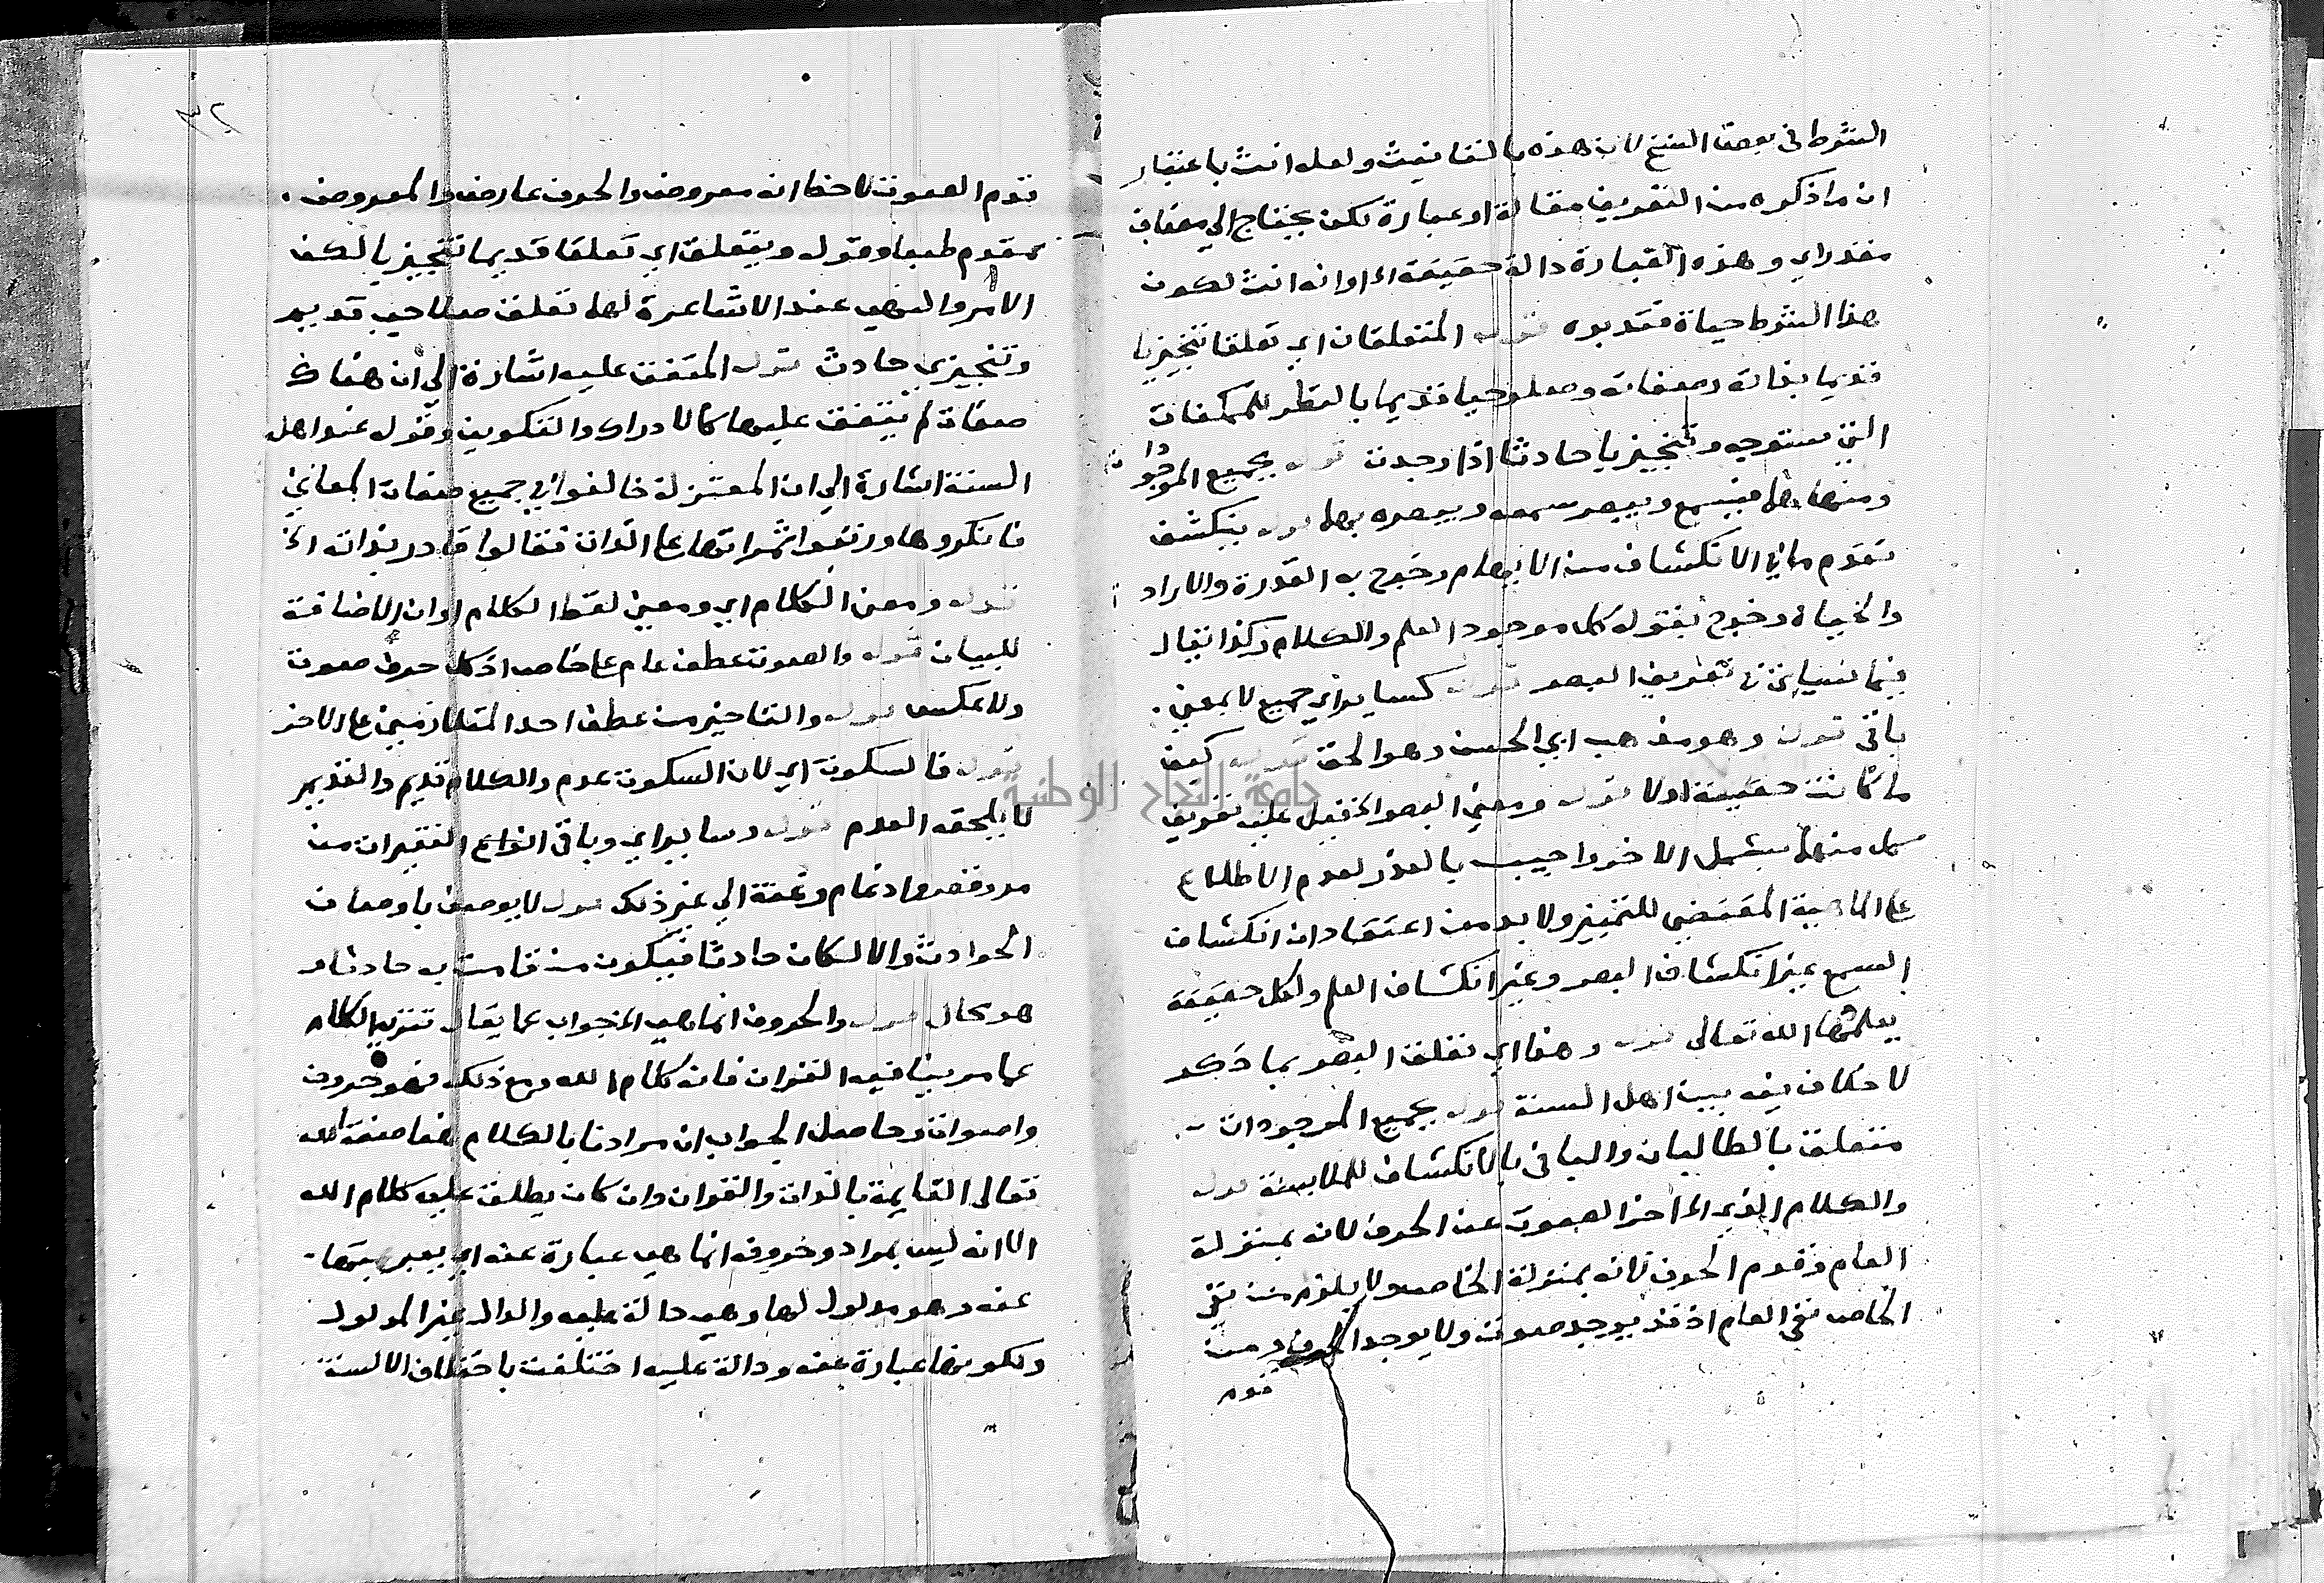 الشرط في بعض النسخ لان هذه بالتانيث ولعله انث باعتبار
ان ما ذكره من التعريف مقالة او عبارة لكن يحتاج الي مضاف
مقدر اي وهذه العبارة دالة حقيقة الخ او انه انث لكون
هذا الشرط حياة فتدبره قوله المتعلقان اي تعلقا تنجيزيا
قديما بذاته وصفاته وصلوحيا قديما بالنظر للممكنات
التي ستوجد وتنجيزيا حادثا اذا وجدت قوله بجميع الموجودات
ومنها فيسمع ويبصر سمعه وبصره بهما قوله ينكشف
تقدم ما في الانكشاف من الايهام وخرج به القدرة والاراد
والحياة وخرج بقوله كل موجود العلم والكلام وكذا يقال
فيما سياتي في تعريف البصر قوله كسايراي جميع لا بمعني
باقي قوله وهو مذهب ابي الحسن وهو الحق قوله كيف
ما كانت حقيقة اولا قوله ومعني البصر الخ قيل عليه تعريف
كل منهما يشمل الاخر واجيب بالعذر لعدم الاطلاع
علي الماهية المقتضي للتمييز ولا بد من اعتقاد ان انكشاف
السمع غير انكشاف البصر وغير انكشاف العلم ولكل حقيقة
يعلمها الله تعالى قوله وهذا اي تعلق البصر بما ذكر
لا خلاف فيه بين اهل السنة قوله بجميع الموجودات
متعلق بالطالبان والباقي بالانكشاف للملابسة قوله
والكلام الذي الخ اخر الصوت عن الحرف لانه بمنزلة
العام وقدم الحرف لانه بمنزلة الخاص ولا يلزم من نفي
الخاص نفي العام اذ قد يوجد صوت ولا يوجد الحرف ومن
قدم
٣٢
قدم الصوت لاحظ انه معروض والحرف عارض والمعروض
مقدم طبعا وقوله ويتعلق اي تعلقا قديما تنجيزيا لكن
الامر والنهي عند الاشاعرة لهما تعلق صلاحي قديم
وتنجيزي حادث قوله المتفق عليه اشارة الي ان هناك
صفات لم يتفق عليها كالادراك والتكوين وقوله عند اهل
السنة اشارة الي ان المعتزلة خالفوا في جميع صفات المعاني
فانكروها ورتبوا ثمراتها علي الذات فقالوا قادر بذاته الخ
قوله ومعنى الكلام اي ومعني لفظ الكلام او ان الاضافة
للبيان قوله والصوت عطف عام علي خاص اذ كل حرف صوت
ولا عكس قوله والتاخير من عطف احد المتلازمين علي الاخر
قوله فالسكوت اي لان السكوت عدم والكلام قديم والقديم
لا يلحقه العدم قوله وسايراي وباقي انواع التغيرات من
مد وقصر وادغام وغنة الي غير ذلك قوله لا يوصف باوصاف
الحوادث والا لكان حادثا فيكون من قامت به حادثا و
هو محال قوله والحروف انما هي الخ جواب عما يقال تنزيه الكلام
عما مر ينافيه القران فانه كلام الله ومع ذلك فهو حروف
واصوات وحاصل الجواب ان مرادنا بالكلام هنا صفة الله
تعالى القايمة بالذات والقران وان كان يطلق عليه كلام الله
الا انه ليس بمراد وحروفه انما هي عبارة عنه اي يعبر بها
عنه وهو مدلول لها وهي دالة عليه والدال غير المدلول
ولكونها عبارة عنه ودالة عليه اختلفت باختلاف الالسنة
جامعة النجاح الوطنية